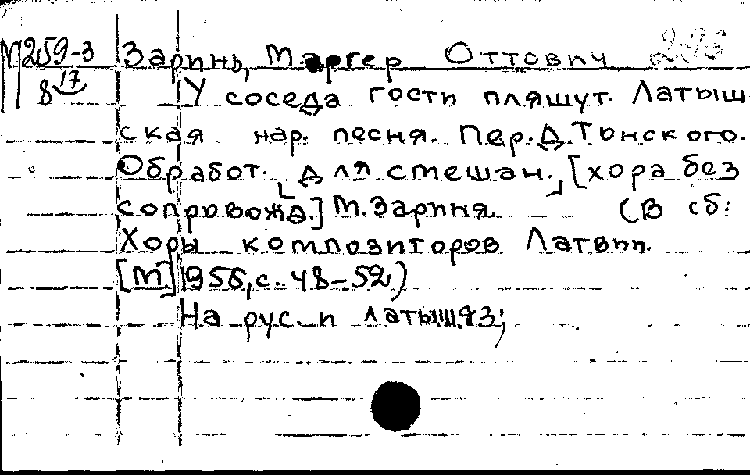 М259-3 Заринь, Маргер Оттович
8 17 У соседа гости пляшут. Латыш-
ская нар. песня. Пер. Д. Тонского.
Обработ. для смешан. [хора без
сопровожд.] М. Зариня. (В сб:
Хоры композиторов Латвии.
[М] 1956, с. 48-52)
На рус. и латыш. яз;